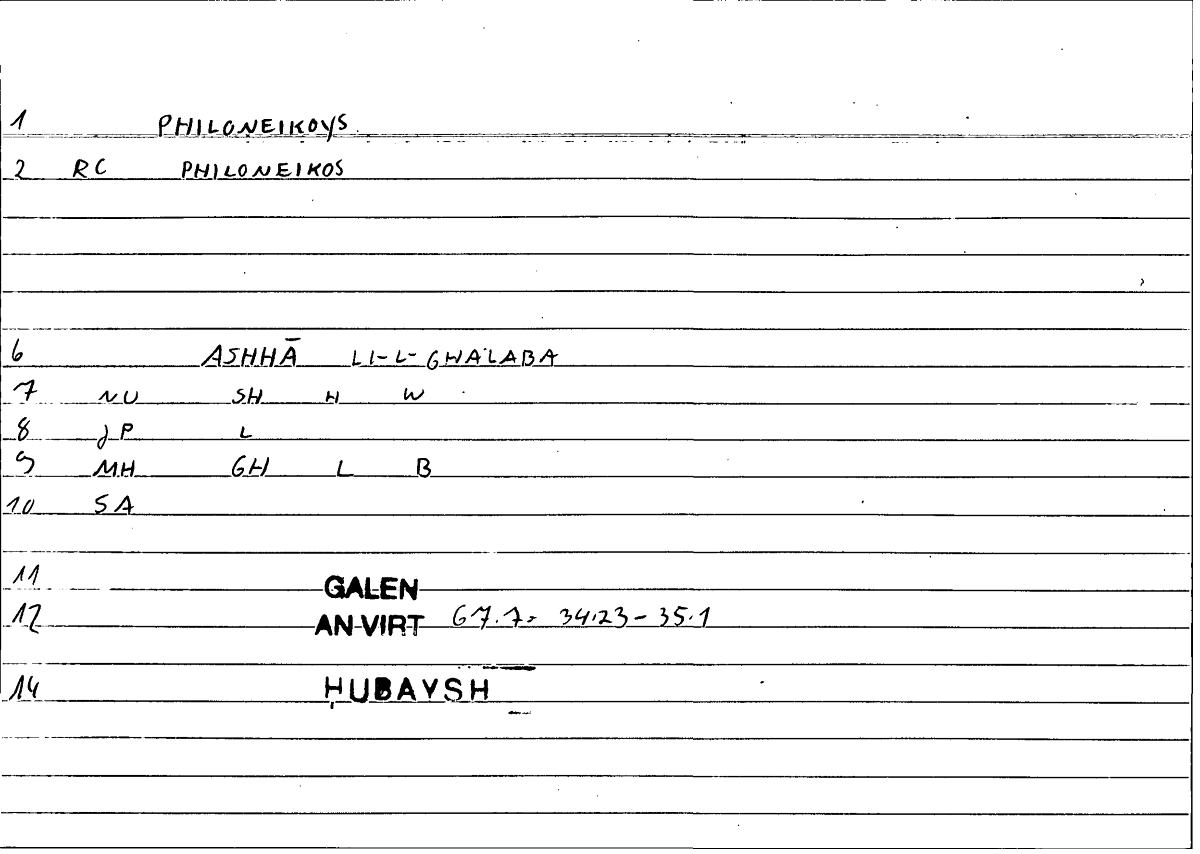 1 PHILONEIKOYS
2 RC PHILONEIKOS
6 ASHHĀ LI-L-GHALABA
7 NU SH H W
8 JP L
9 MH GH L B
10 SA
11 GALEN
12 AN-VIRT 67.7= 34.23-35.1
14 ḤUBAYSH